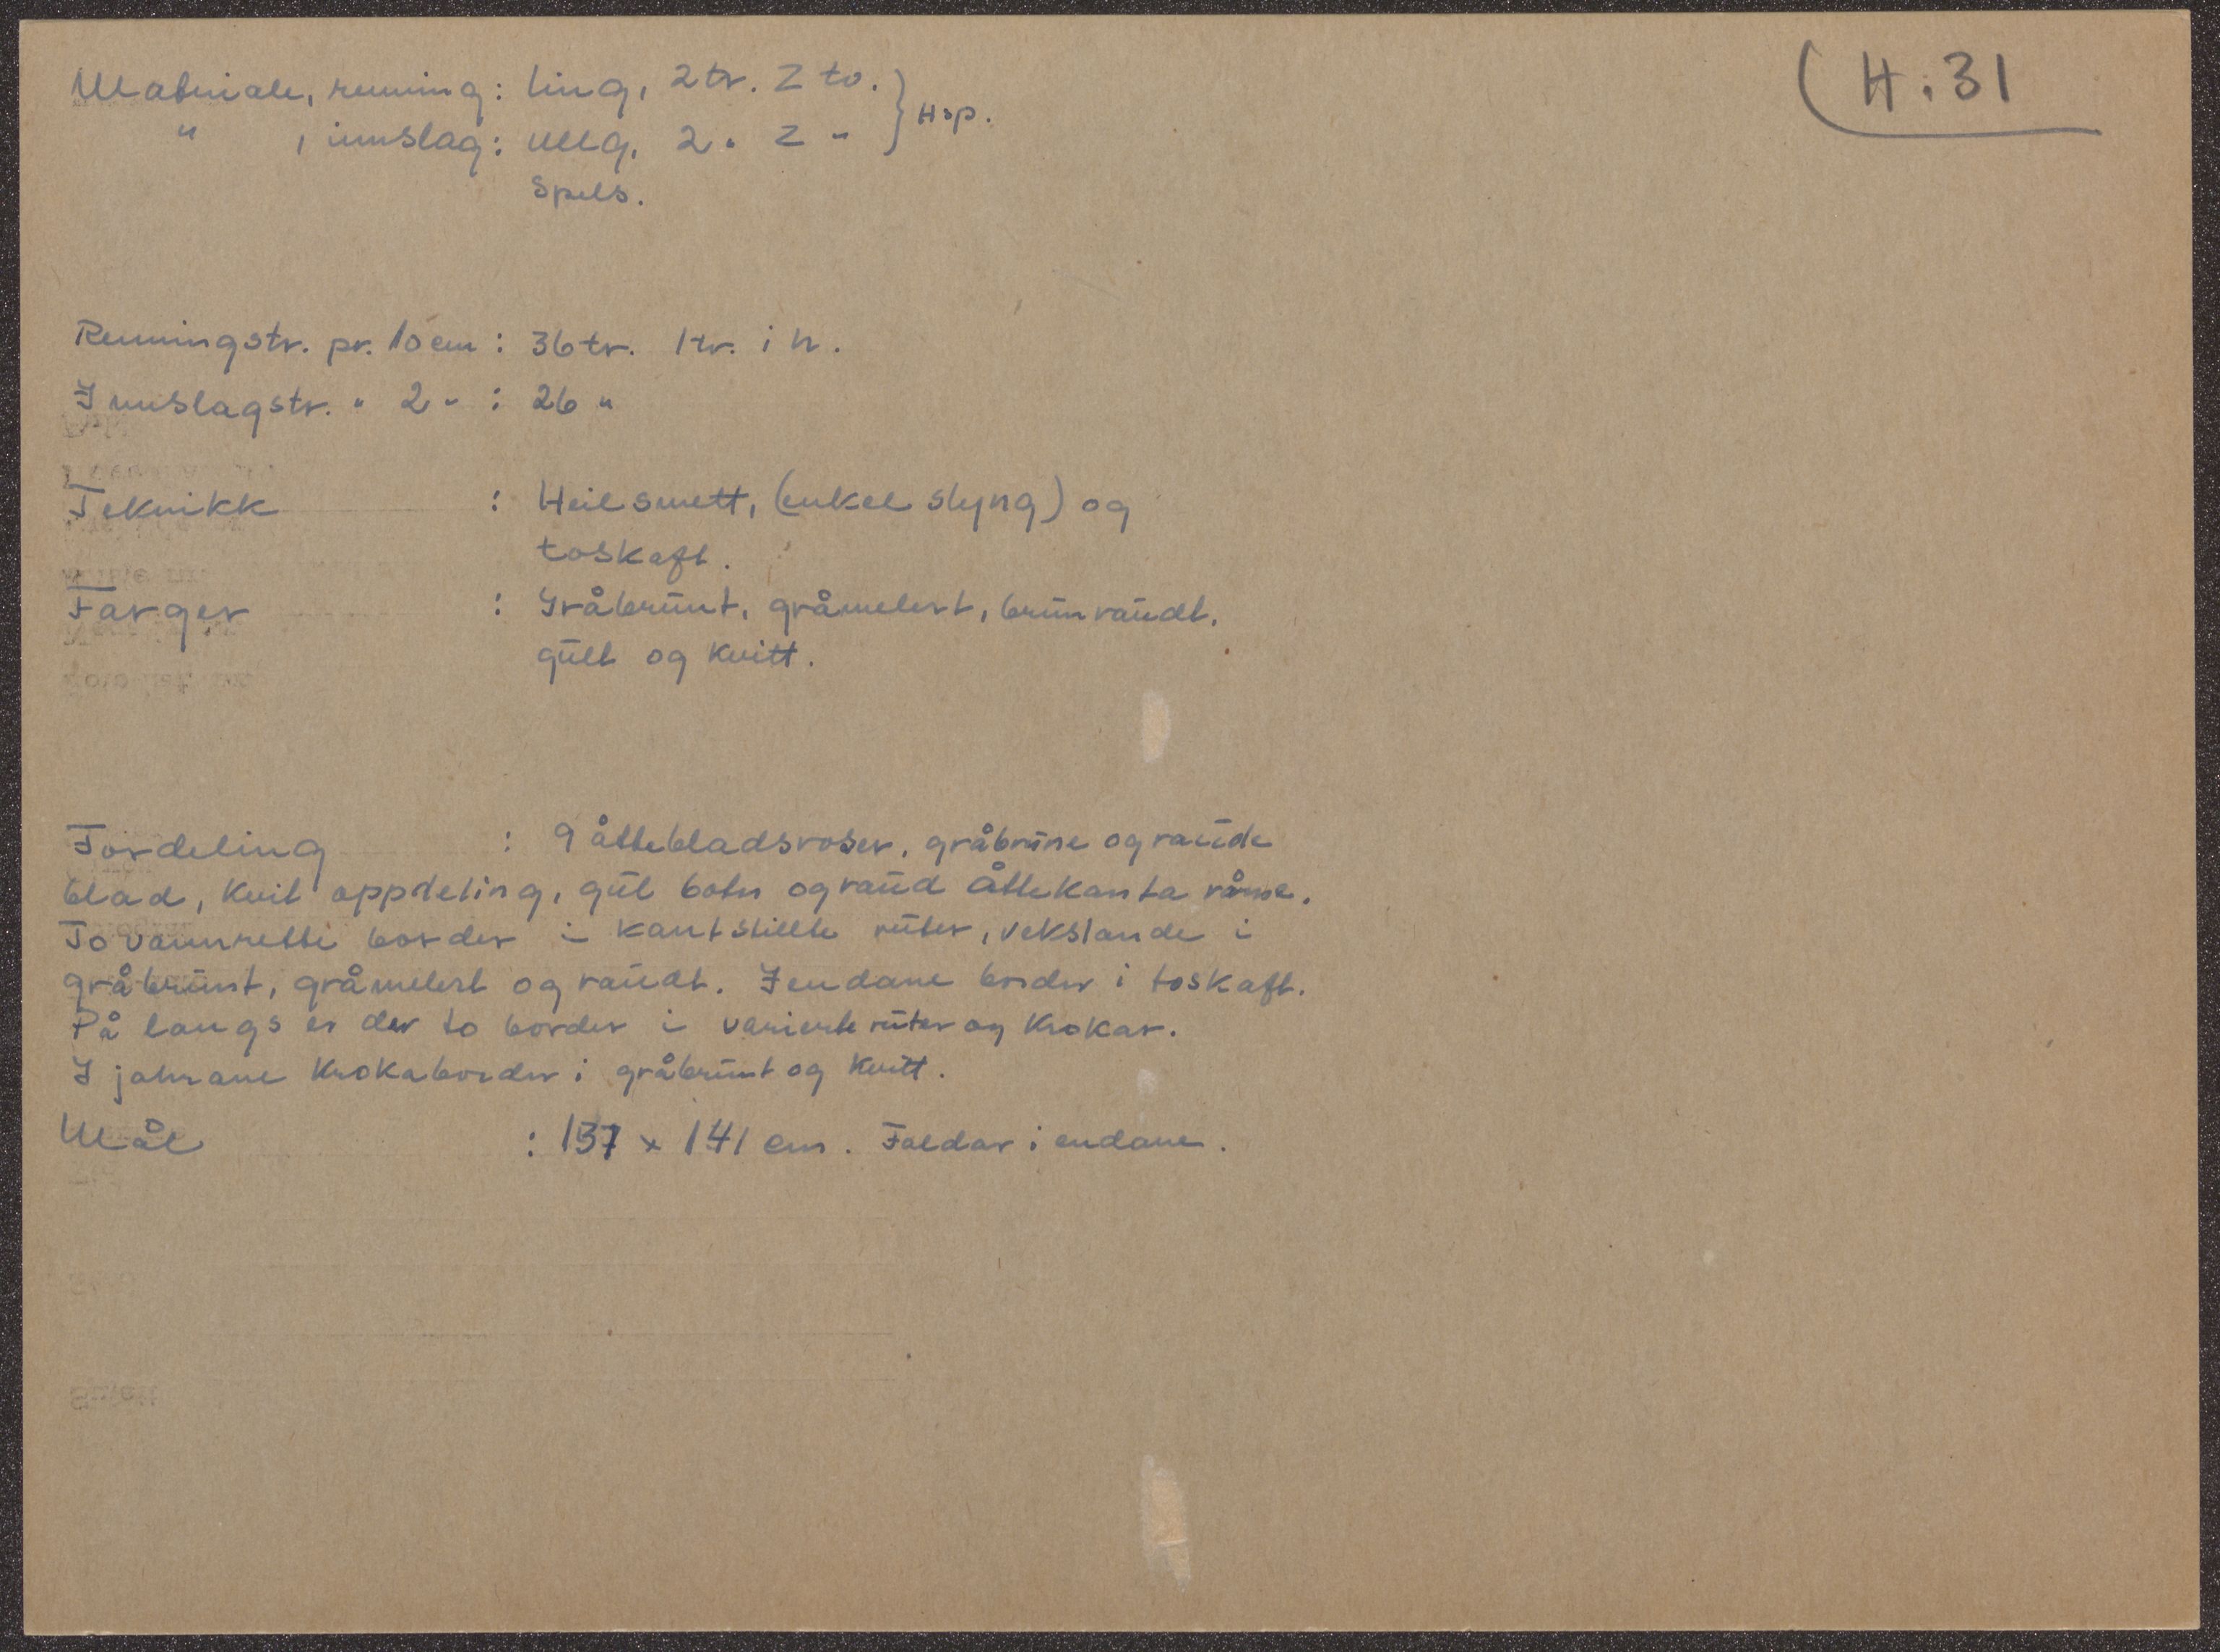 H. 31
Materiale, renning: ling, 2 tr. Z to. } Hsp.
" , innslag: ullg. 2 " Z "
Spels.
Renningstr. pr. 10 cm : 36 tr. 1 tr. i h.
Innslagstr. " 2 " : 26 "
Teknikk : Heilsmett, (enkel slyng) og
toskaft.
Farger : Gråbrunt, gråmelert, brunraudt,
gult og kvitt.
Fordeling : 9 åttebladsroser, gråbrune og raude
blad, kvit oppdeling, gul botn og raud åttekanta råme.
To vannrette border i kantstillte ruter, vekslande i
gråbrunt, gråmelert og raudt. I endane border i toskaft.
På langs er der to border i varierte ruter og krokar.
I jahrane krokaborder i gråbrunt og kvitt.
Mål : 137 x 141 cm. Faldar i endane.